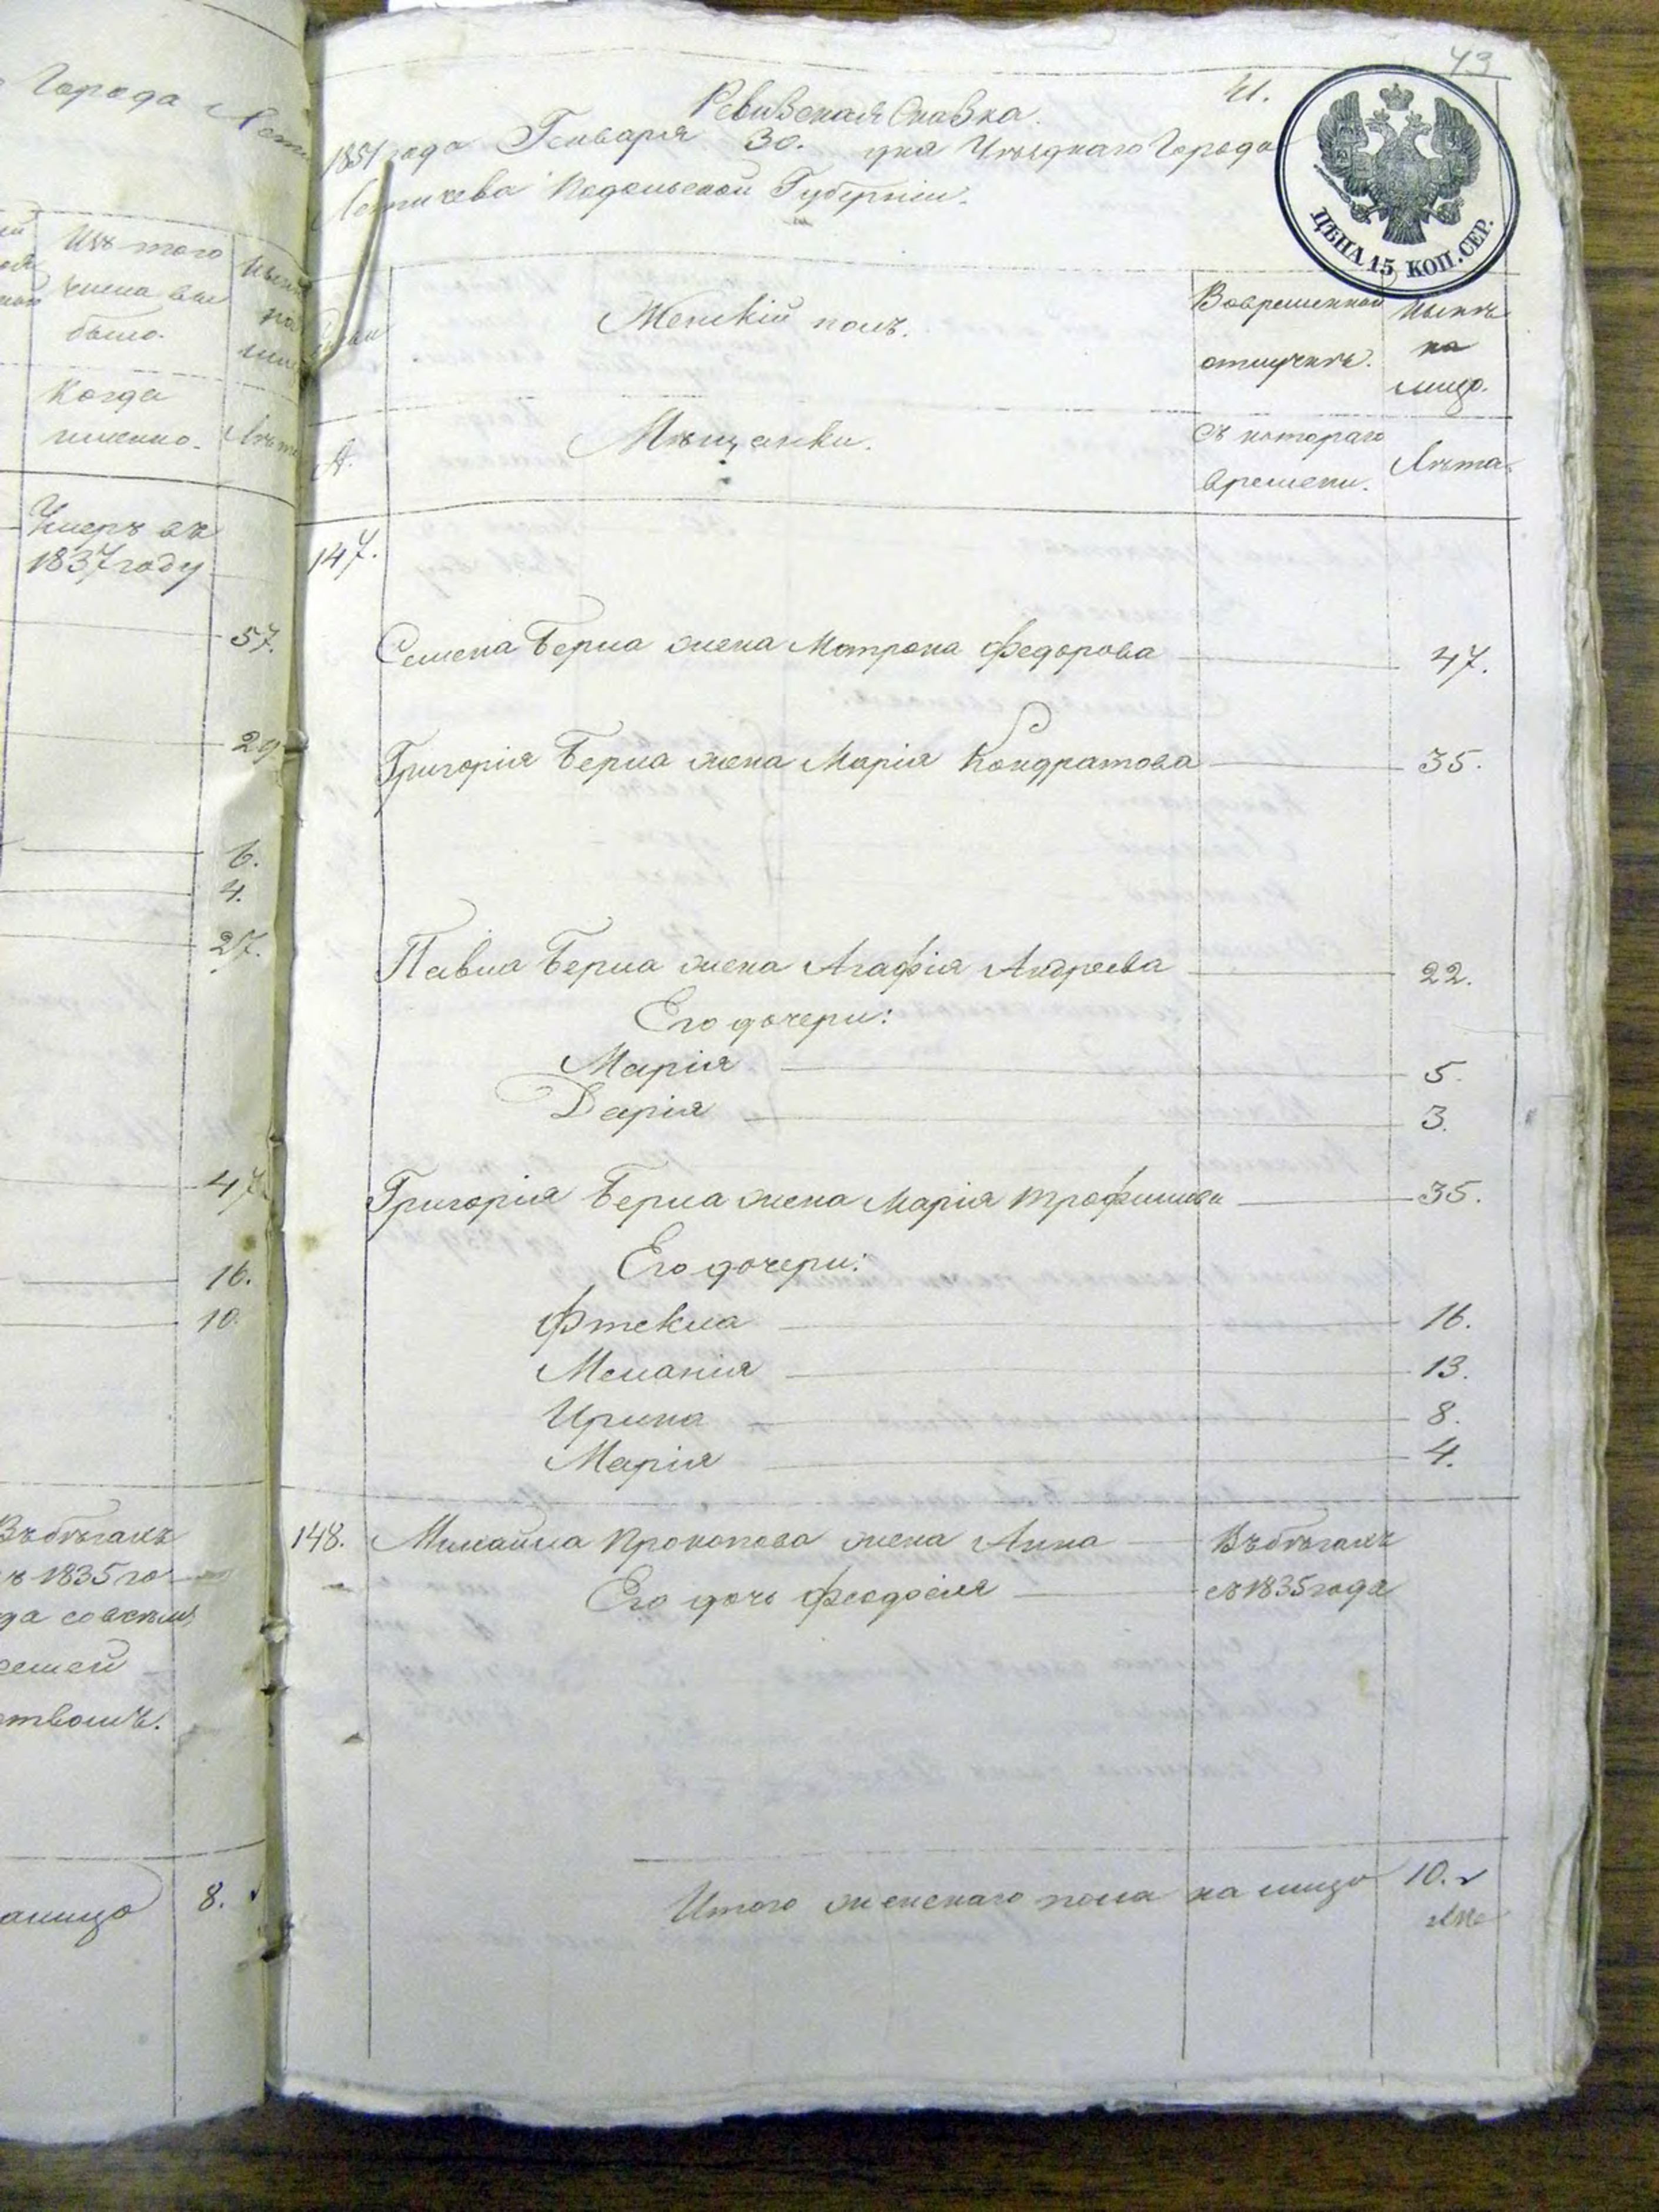 Города
Изъ того
числа вы
было.
Когда
именно.
Лѣта
Умеръ въ
1837 году
57.
29
6.
4.
27.
47.
16.
10.
Въ бѣгахъ
съ 1835 го
да совсѣмъ
семей
ствомъ.
8.
43
41.
Ревизская Сказка.
1851 года Генваря 30. дня Уѣзднаго Города
Летичева Подольской Губерніи.
ЦѢНА 15 КОП. СЕР.
Женскій полъ.
Вовременной
отлучкѣ.
Нынѣ
на
лицо.
Мѣщанки.
Съ котораго
времени.
Лѣта
147.
Семена Берна жена Матрона Федорова 47.
Григорія Берна жена Марія Кондратова 35.
Павла Берна жена Агафія Андреева 22.
Его дочери:
Марія 5.
Дарія 3.
Григорія Берна жена Марія Трофимова 35.
Его дочери:
Фтекла 16.
Меланія 13.
Ирина 8.
Марія 4.
148. Михайла Прокопова жена Анна Въ бѣгахъ
Его дочь Феодосія съ 1835 года
Итого женскаго пола на лицо 10.